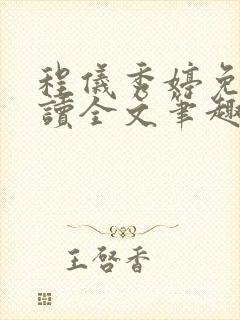 程儀秀婷免
讀全文筆趣
王啓香